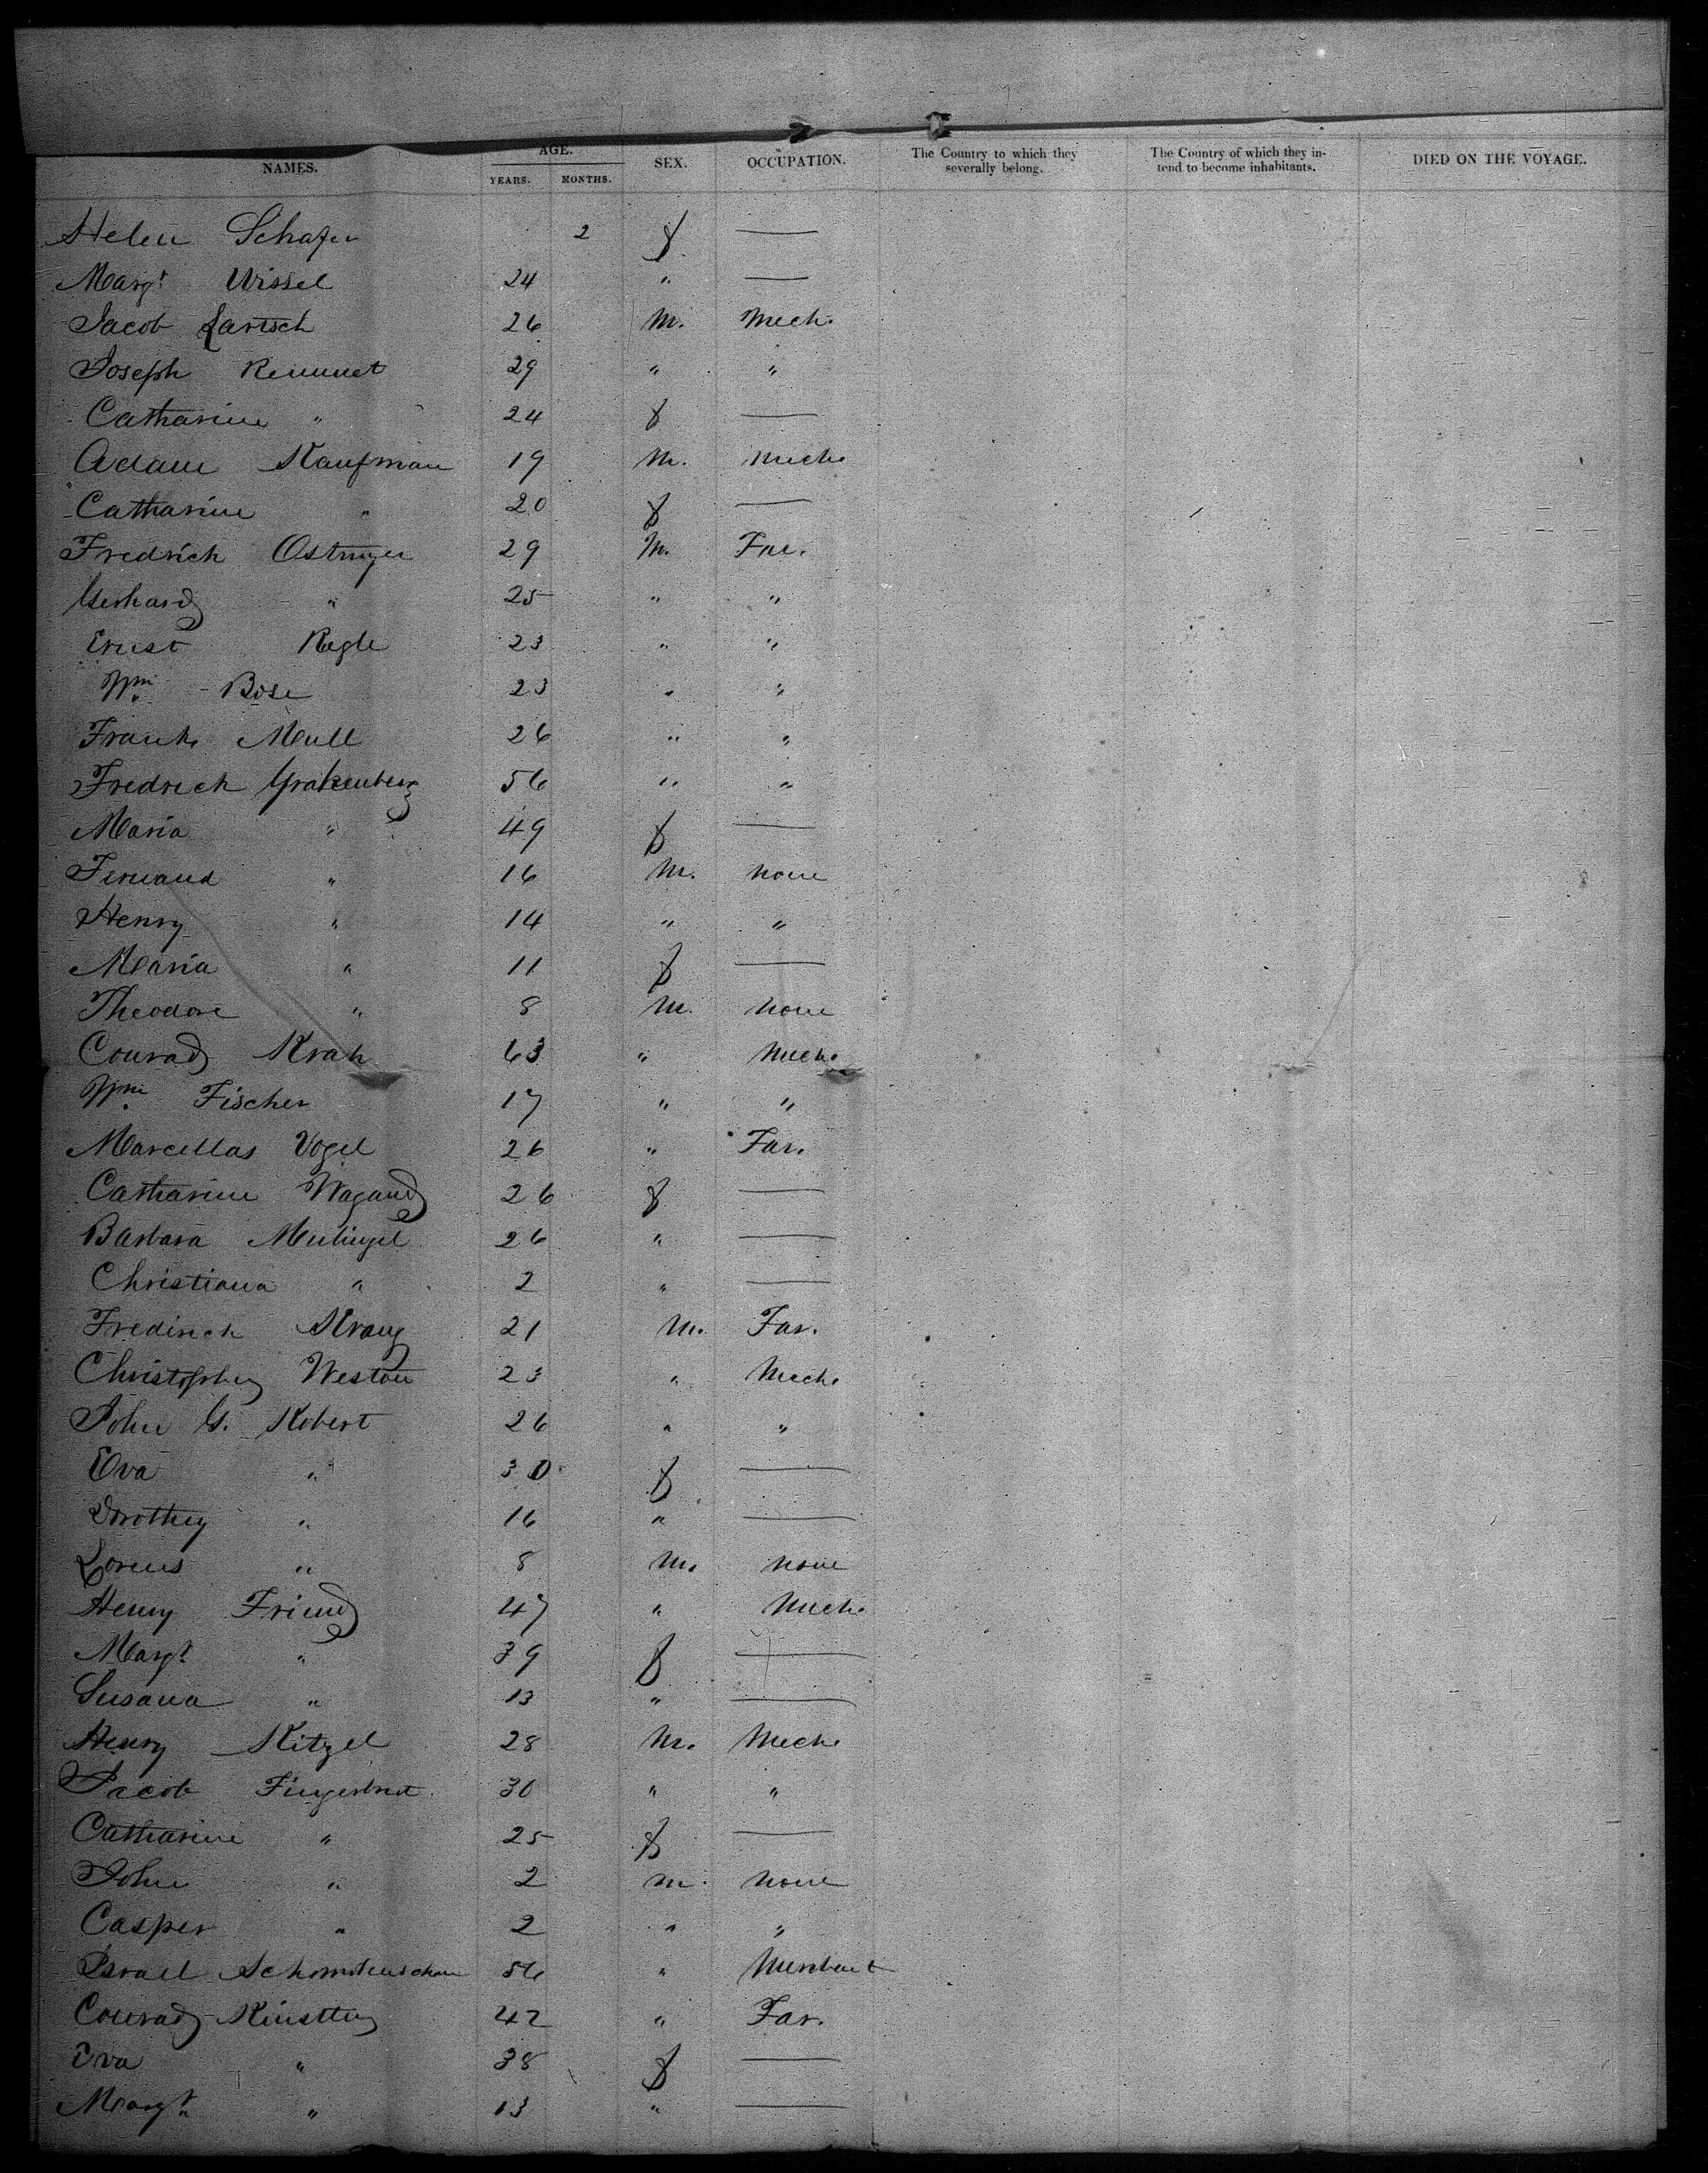 NAMES. AGE. SEX. OCCUPATION. The Country to which they severally belong. The Country of which they intend to become inhabitants. DIED ON THE VOYAGE.
YEARS. MONTHS.
Helen Schafer 2 f —
Margt Wissel 24 " —
Jacob Lartsch 26 M. Mech.
Joseph 29 " "
Catharine " 24 f —
Adam Kaufman 19 M. Mech.
Catharine " 20 f —
Fredrich 29 M. Far.
Gerhard " 25 " "
Ernst Regle 23 " "
Wm Bose 23 " "
Frank Mull 26 " "
Fredrich Grakenberg 56 " "
Maria " 49 f —
Fernand " 16 M. none
Henry " 14 " "
Maria " 11 f —
Theodore " 8 M. none
Conrad Krah 63 " Mech.
Wm Fischer 17 " "
Marcellas Vogel 26 " Far.
Catharine Wagand 26 f —
Barbara 26 " —
Christiana " 2 " —
Fredirich Kraug 21 M. Far.
Christopher Weston 23 " Mech.
John G. Robert 26 " "
Eva " 30 f —
Dorothey " 16 " —
Lorens " 8 M. none
Henry Friend 47 " Mech.
Margt " 39 f —
Susana " 13 " —
Henry Kitzel 28 M. Mech.
Jacob 30 " "
Catharine " 25 f —
John " 2 m. none
Casper " 2 " "
Israel 56 " Merchant
Conrad 42 " Far.
Eva " 38 f —
Margt " 13 " —